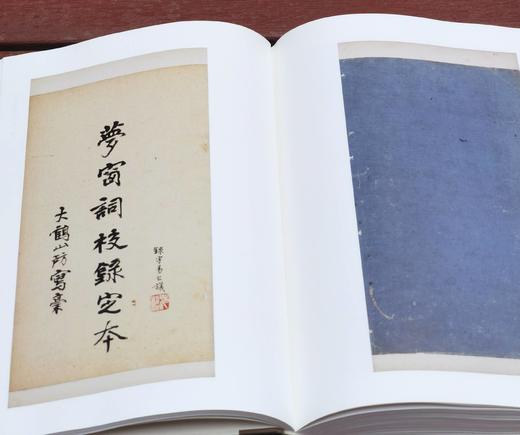 夢窗詞校錄定本
大鶴山房寫稾